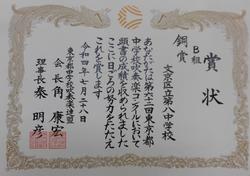 賞状
B組
銅賞
文京区立第八中学校
あなたがたは第六十二回東京都
中学校吹奏楽コンクールにおいて
頭書の成績を収められました
ここに日ごろの努力をたたえ
これを賞します
令和四年七月二十八日
東京都中学校吹奏楽連盟
会長 角 康宏
理事長 秦 明彦